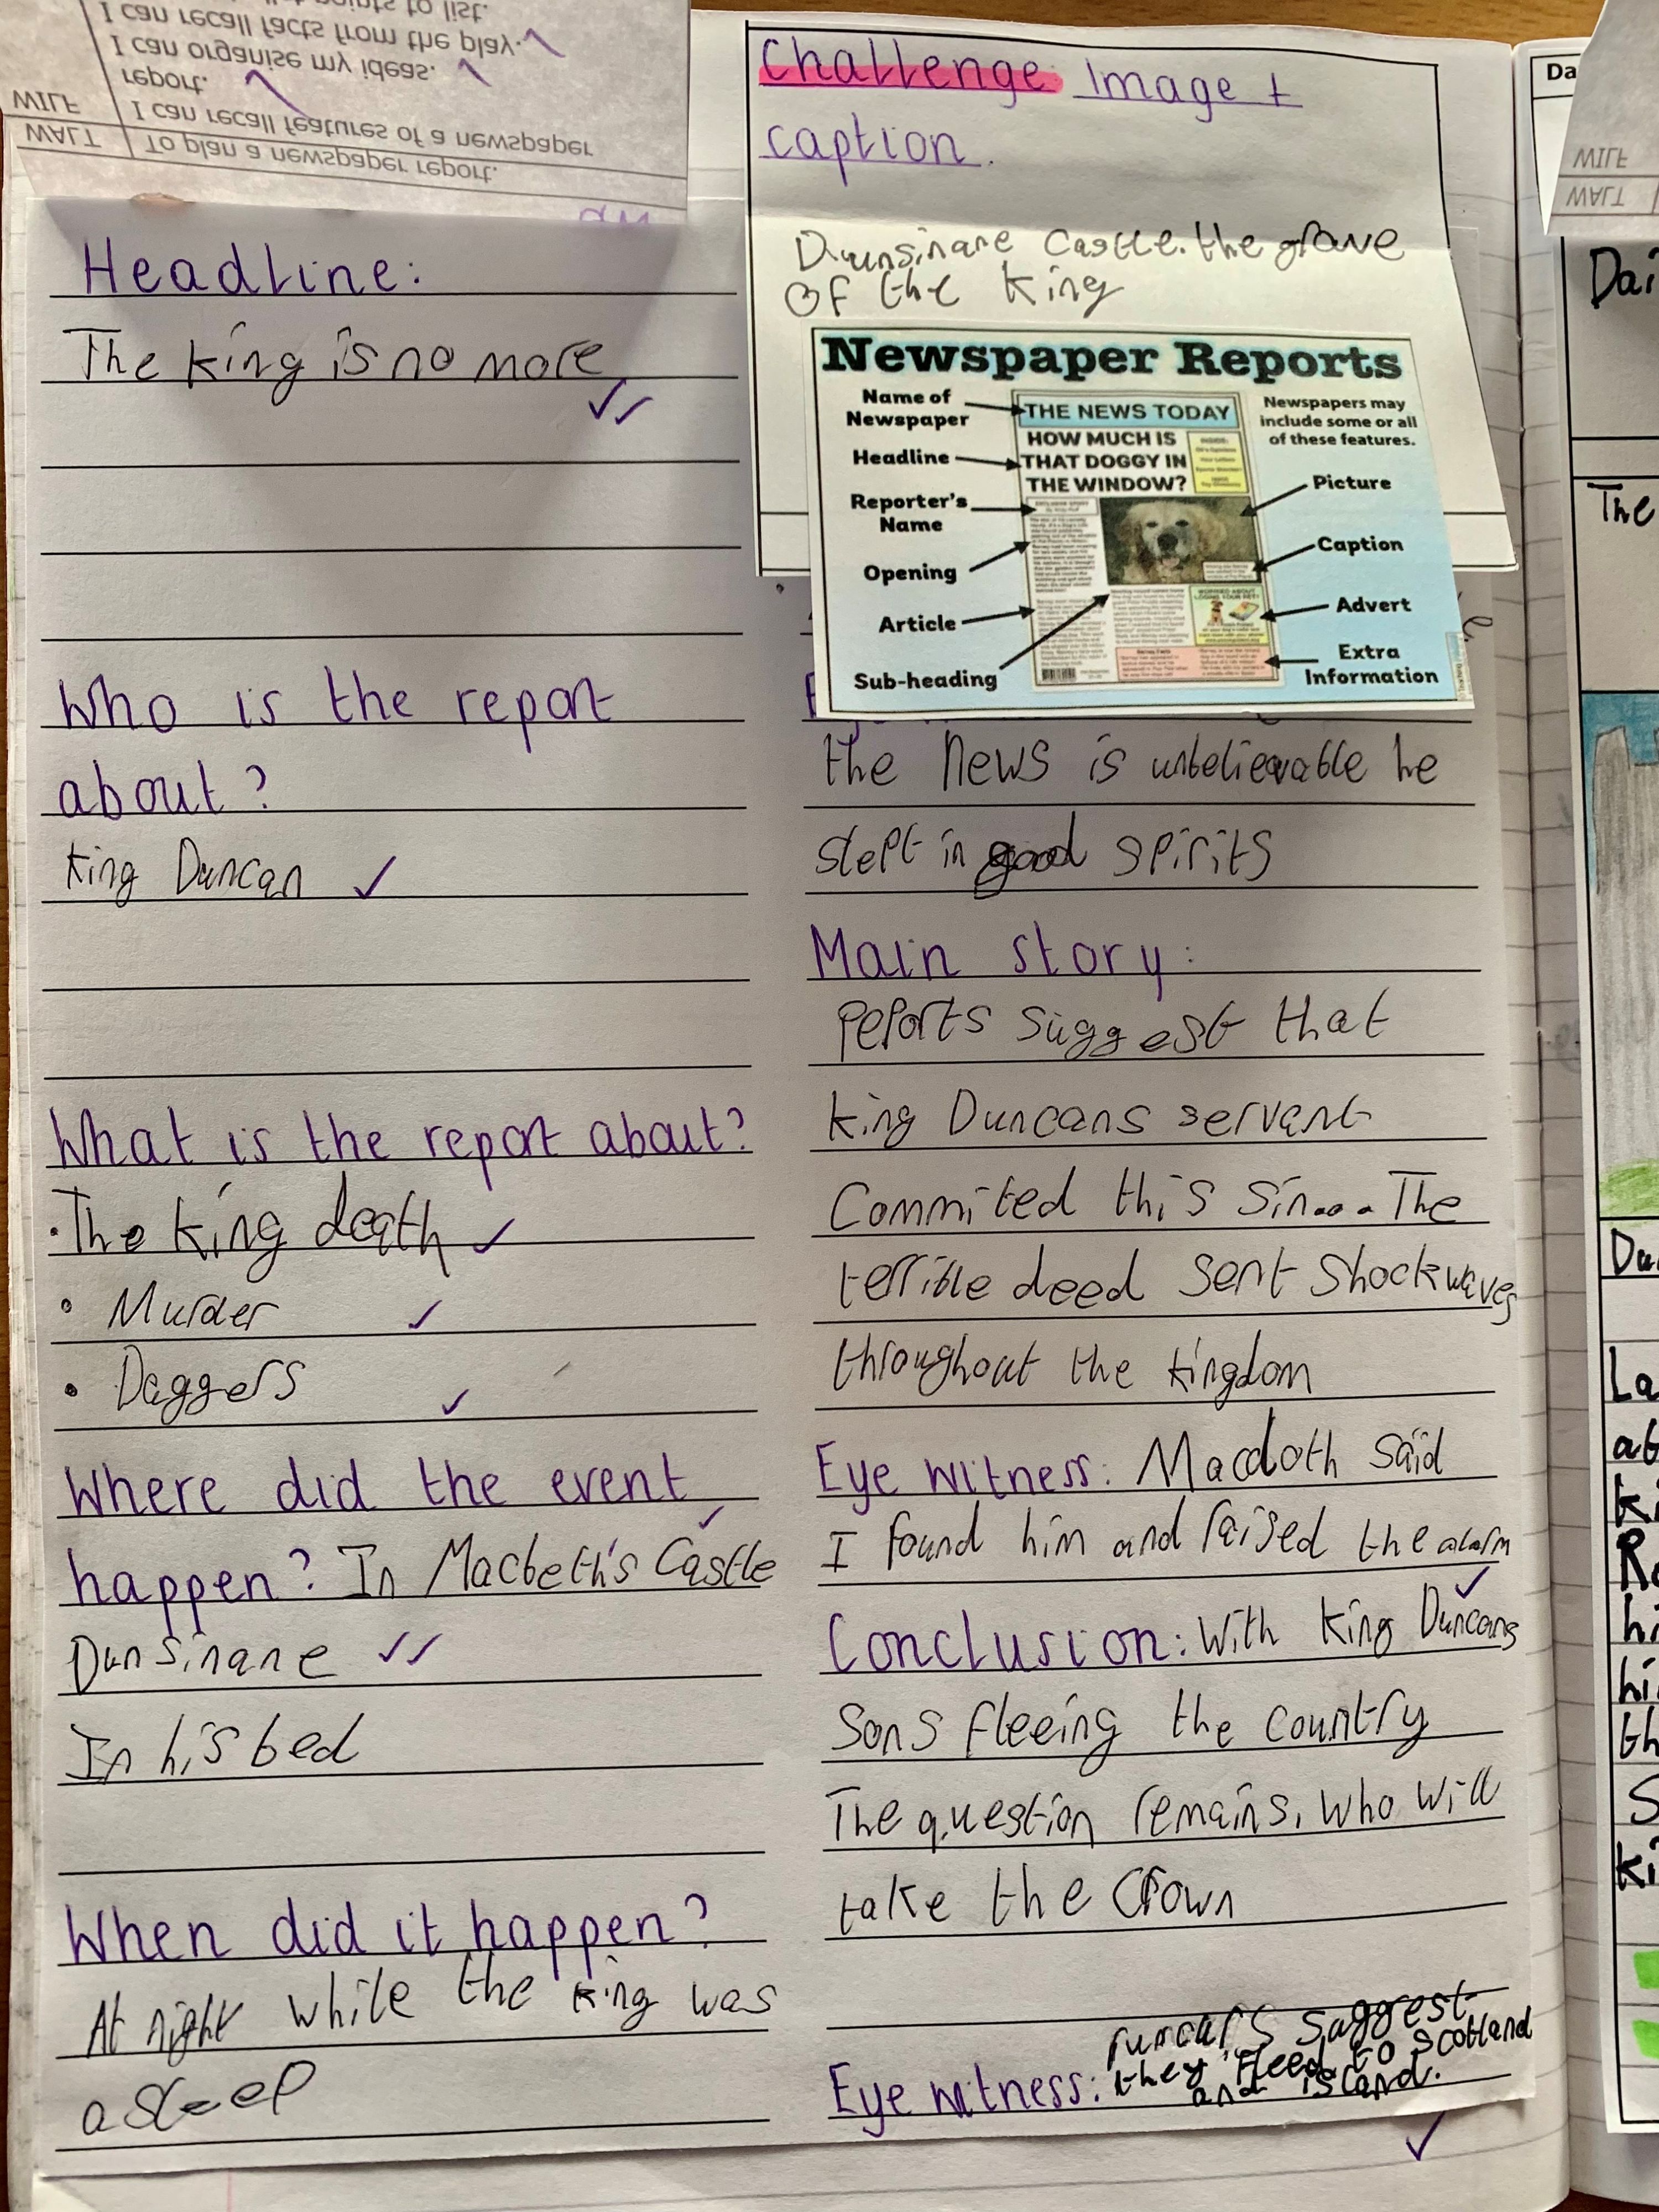 points to list.
I can recall facts from the play.
I can organise my ideas.
report.
WILF I can recall features of a newspaper
WALT To plan a newspaper report.
Headline:
The King is no more
Who is the report
about?
King Duncan
What is the report about?
• The King death
• Murder
• Daggers
Where did the event
happen? In Macbeth's Castle
Dunsinane
In his bed
When did it happen?
At night while the King was
asleep
Challenge Image +
caption.
Duunsinane Castle. the grave
Of the King
Newspaper Reports
Name of
Newspaper
Headline
Reporter's
Name
Opening
Article
Sub-heading
THE NEWS TODAY
HOW MUCH IS
THAT DOGGY IN
THE WINDOW?
Newspapers may
include some or all
of these features.
Picture
Caption
Advert
Extra
Information
the News is unbelievable he
slept in good spirits
Main story:
reports suggest that
King Duncans servant
Commited this Sin.... The
terrible deed sent Shockwaves
throughout the Kingdom
Eye witness: Macdoth Said
I found him and raised the alarm
Conclusion: With King Duncans
Sons fleeing the country
The question remains, who will
take the Crown
rumours suggest
Eye witness: they fleed to Scotland
and island.
Da
WILF
WALT
Dai
The
Du
La
at
Ki
Ro
hi
hi
th
S
Ki